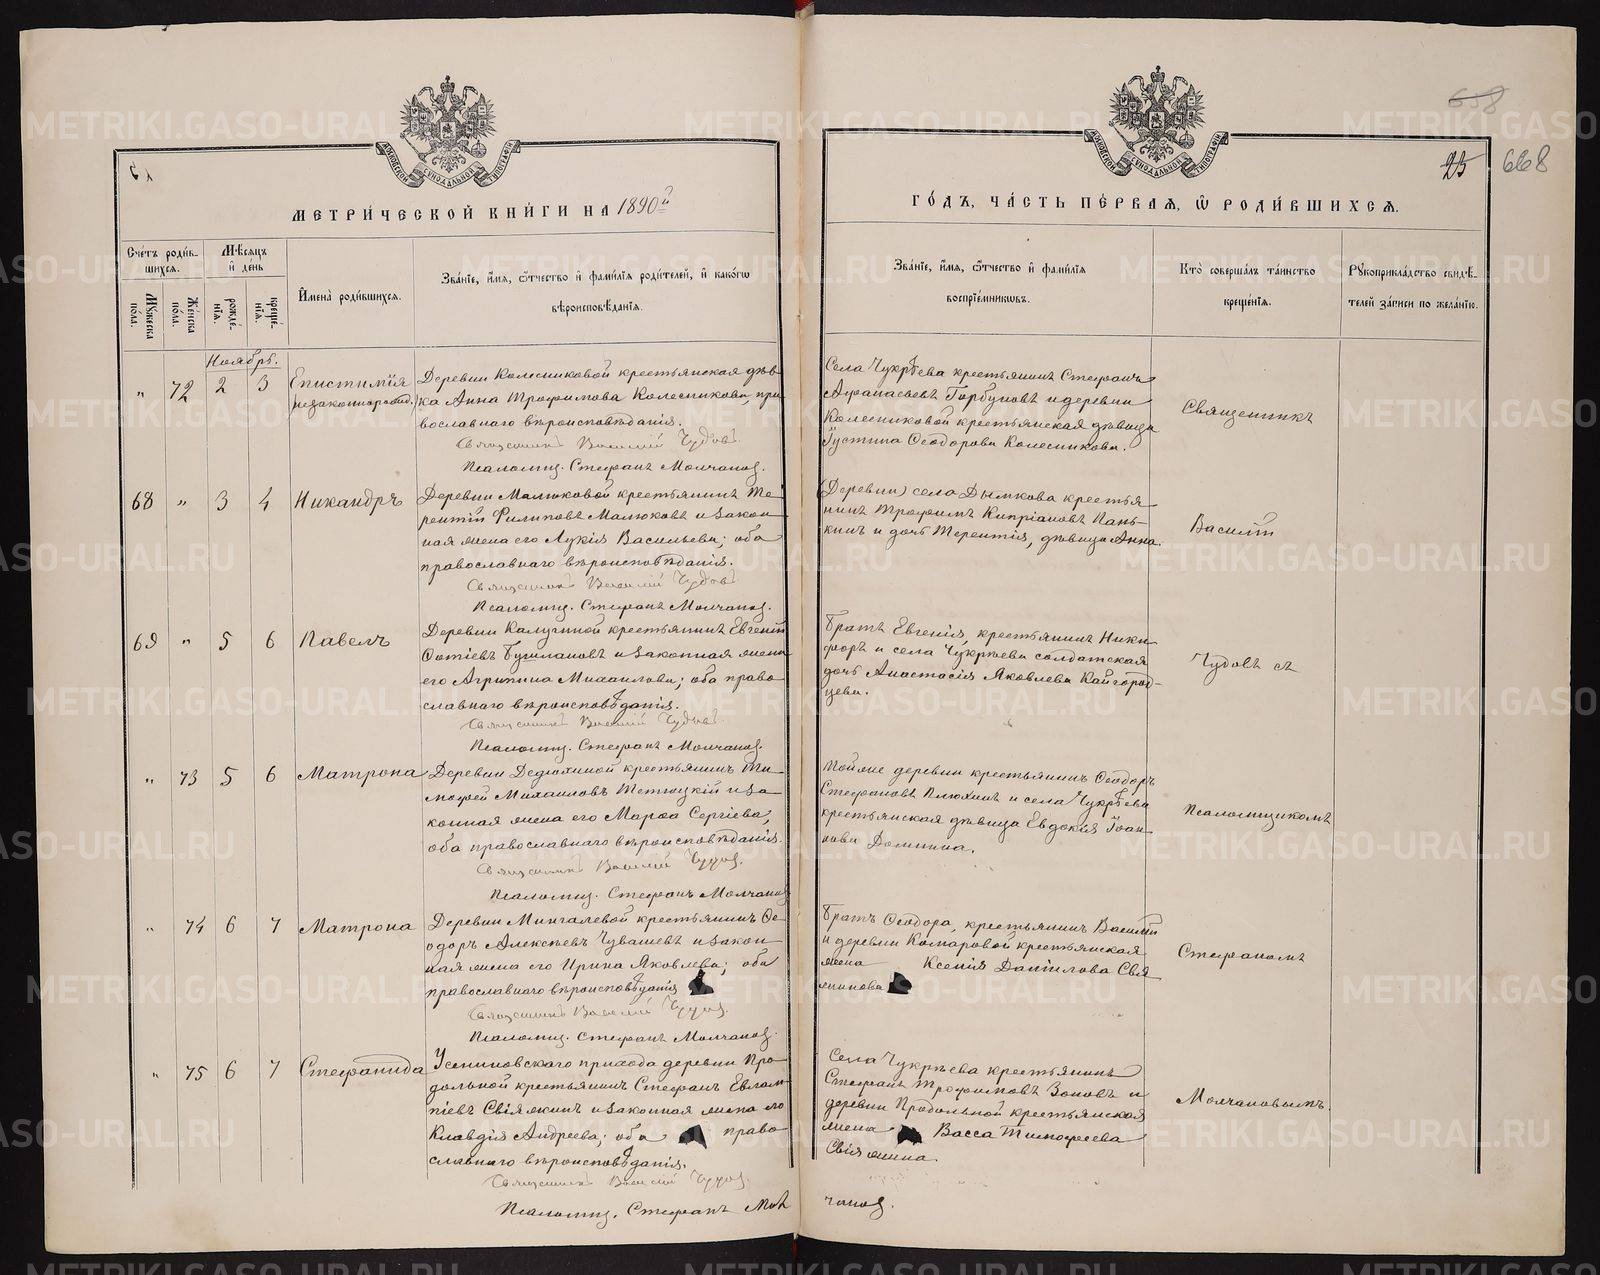 658
25 668
МЕТРИ́ЧЕСКОЙ КНИ́ГИ НА 1890й
ГО́ДЪ, ЧА́СТЬ ПЕ́РВАЯ, Ѡ РОДИ́ВШИХСЯ.
Сче́тъ роди́вшихся.
Мѣ́сяцъ и́ де́нь
Мꙋжеска пола.
Же́нска пола.
рожде́нїя.
креще́нїя.
И҆мена̀ роди́вшихся.
Зва́нїе, и҆́мя, ѻ҆́тчество и҆ фами́лїя роди́телей, и҆ како́гѡ
вѣроисповѣ́данїя.
Зва́нїе, и҆́мя, ѻ҆́тчество и҆ фами́лїя
воспрїе́мникѡвъ.
Кто̀ соверша́лъ та́инство
креще́нїя.
Рꙋкоприкла́дство свидѣ́телей за́писи по жела́нїю.
Ноябрь.
„ 72 2 3 Епистимія (незаконнорожд.)
Деревни Колесниковой крестьянская дѣв-
ка Анна Трофимова Колесникова, пра
вославнаго вѣроисповѣданія.
Священникъ Василій Чудовъ.
Псаломщ. Стефанъ Молчановъ.
Села Чукрѣева крестьянинъ Стефанъ
Афанасьевъ Горбуновъ и деревни
Колесниковой крестьянская дѣвица
Іустина Ѳеодорова Колесникова.
Священникъ
68 „ 3 4 Никандръ
Деревни Малюковой крестьянинъ Те-
рентій Филиповъ Малюковъ и закон-
ная жена его Лукія Васильева; оба
православнаго вѣроисповѣданія.
Священникъ Василій Чудовъ
Псаломщ. Стефанъ Молчановъ.
(Деревни) села Дымкова крестья-
нинъ Трофимъ Кипріановъ Пань-
кинъ и дочь Терентія, дѣвица Анна.
Василій
69 „ 5 6 Павелъ
Деревни Калугиной крестьянинъ Евгеній
Фотіевъ и законная жена
его Агрипина Михаилова; оба право-
славнаго вѣроисповѣданія.
Священникъ Василій Чудовъ.
Псаломщ. Стефанъ Молчановъ.
Братъ Евгенія, крестьянинъ Ники-
форъ и села Чукрѣева солдатская
дочь Анастасія Яковлева Кайгород-
цева.
Чудовъ съ
„ 73 5 6 Матрона
Деревни Дедюхиной крестьянинъ Ти-
мофей Михаиловъ и за-
конная жена его Марѳа Сергіева,
оба православнаго вѣроисповѣданія.
Священникъ Василій Чудовъ.
Псаломщ. Стефанъ Молчановъ
Той же деревни крестьянинъ Ѳеодоръ
Стефановъ Плюхинъ и села Чукрѣева
крестьянская дѣвица Евдокія Іоан-
нова Домнина.
Псаломщикомъ
„ 74 6 7 Матрона
Деревни Мингалевой крестьянинъ Ѳе-
одоръ Алексѣевъ Чувашевъ и закон-
ная жена его Ирина Яковлева; оба
православнаго вѣроисповѣданія
Священникъ Василій Чудовъ.
Псаломщ. Стефанъ Молчановъ.
Братъ Ѳеодора, крестьянинъ Василій
и деревни Комаровой крестьянская
жена Ксенія Даніилова Свя
жнинова
Стефаномъ
„ 75 6 7 Стефанида
Усениновскаго прихода деревни Про-
дольной крестьянинъ Стефанъ Евгам-
піевъ Свіяжинъ и законная жена его
Клавдія Андреева; оба право
славнаго вѣроисповѣданія.
Священникъ Василій Чудовъ.
Псаломщ. Стефанъ Молчановъ.
Села Чукрѣева крестьянинъ
Стефанъ Трофимовъ Зоновъ и
деревни Продольной крестьянская
жена Васса Тимофеева
Свіяжина
Молчановымъ.
METRIKI.GASO-URAL.RU